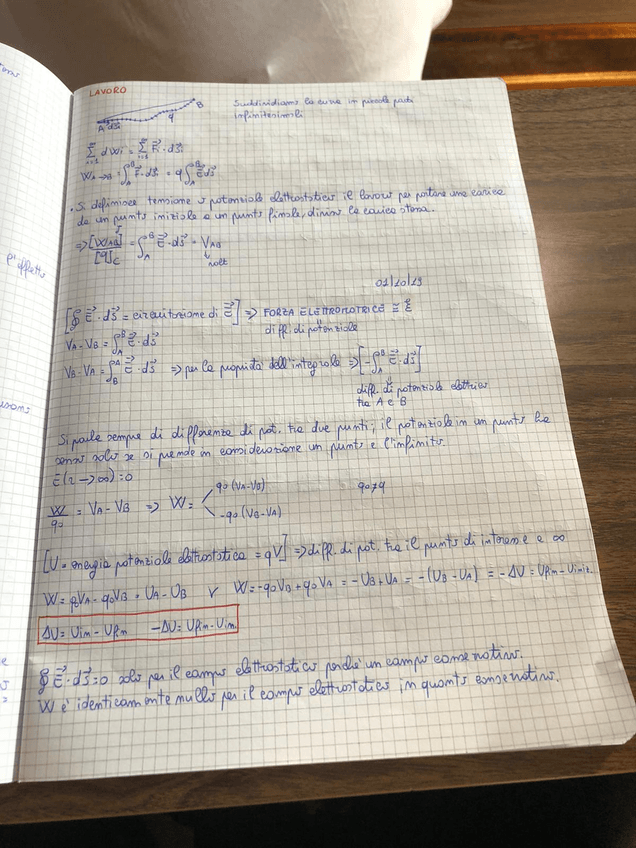 LAVORO
A dSi q B
Suddividiamo la curva in piccole parti
infinitesimali
∑ dWi = ∑ Fi · dSi
i=1 i=1
WA→B = ∫A^B F · dS = q ∫A^B E dS
• Si definisce tensione o potenziale elettrostatico il lavoro per portare una carica
da un punto iniziale a un punto finale, diviso la carica stessa.
=> [WAB]J / [q]C = ∫A^B E · dS = VAB
↓
volt
01/10/19
[∮ E · dS = circuitazione di E] => FORZA ELETTROMOTRICE ≅ ξ
diff. di potenziale
VA - VB = ∫A^B E · dS
VB - VA = ∫B^A E · dS => per la proprietà dell'integrale => [-∫A^B E · dS]
↓
diff. di potenziale elettrico
tra A e B
Si parla sempre di differenza di pot. tra due punti; il potenziale in un punto ha
senso solo se si prende in considerazione un punto e l'infinito.
E(r → ∞) = 0
W/q0 = VA - VB => W = < q0 (VA - VB)
-q0 (VB - VA)
q0 > q
[U = energia potenziale elettrostatica = qV] => diff. di pot. tra il punto di interesse e ∞
W = q0VA - q0VB = UA - UB v W = -q0VB + q0VA = -UB + UA = -(UB - UA) = -ΔU = Ufin - Uiniz.
ΔU = Uin - Ufin -ΔU = Ufin - Uin.
∮ E · dS = 0 solo per il campo elettrostatico perché un campo conservativo.
W è identicamente nullo per il campo elettrostatico in quanto conservativo.
l'effetto